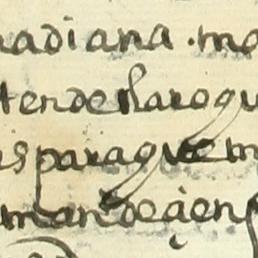 nadiana. mo
tender la rogu
is para que m
man de a en